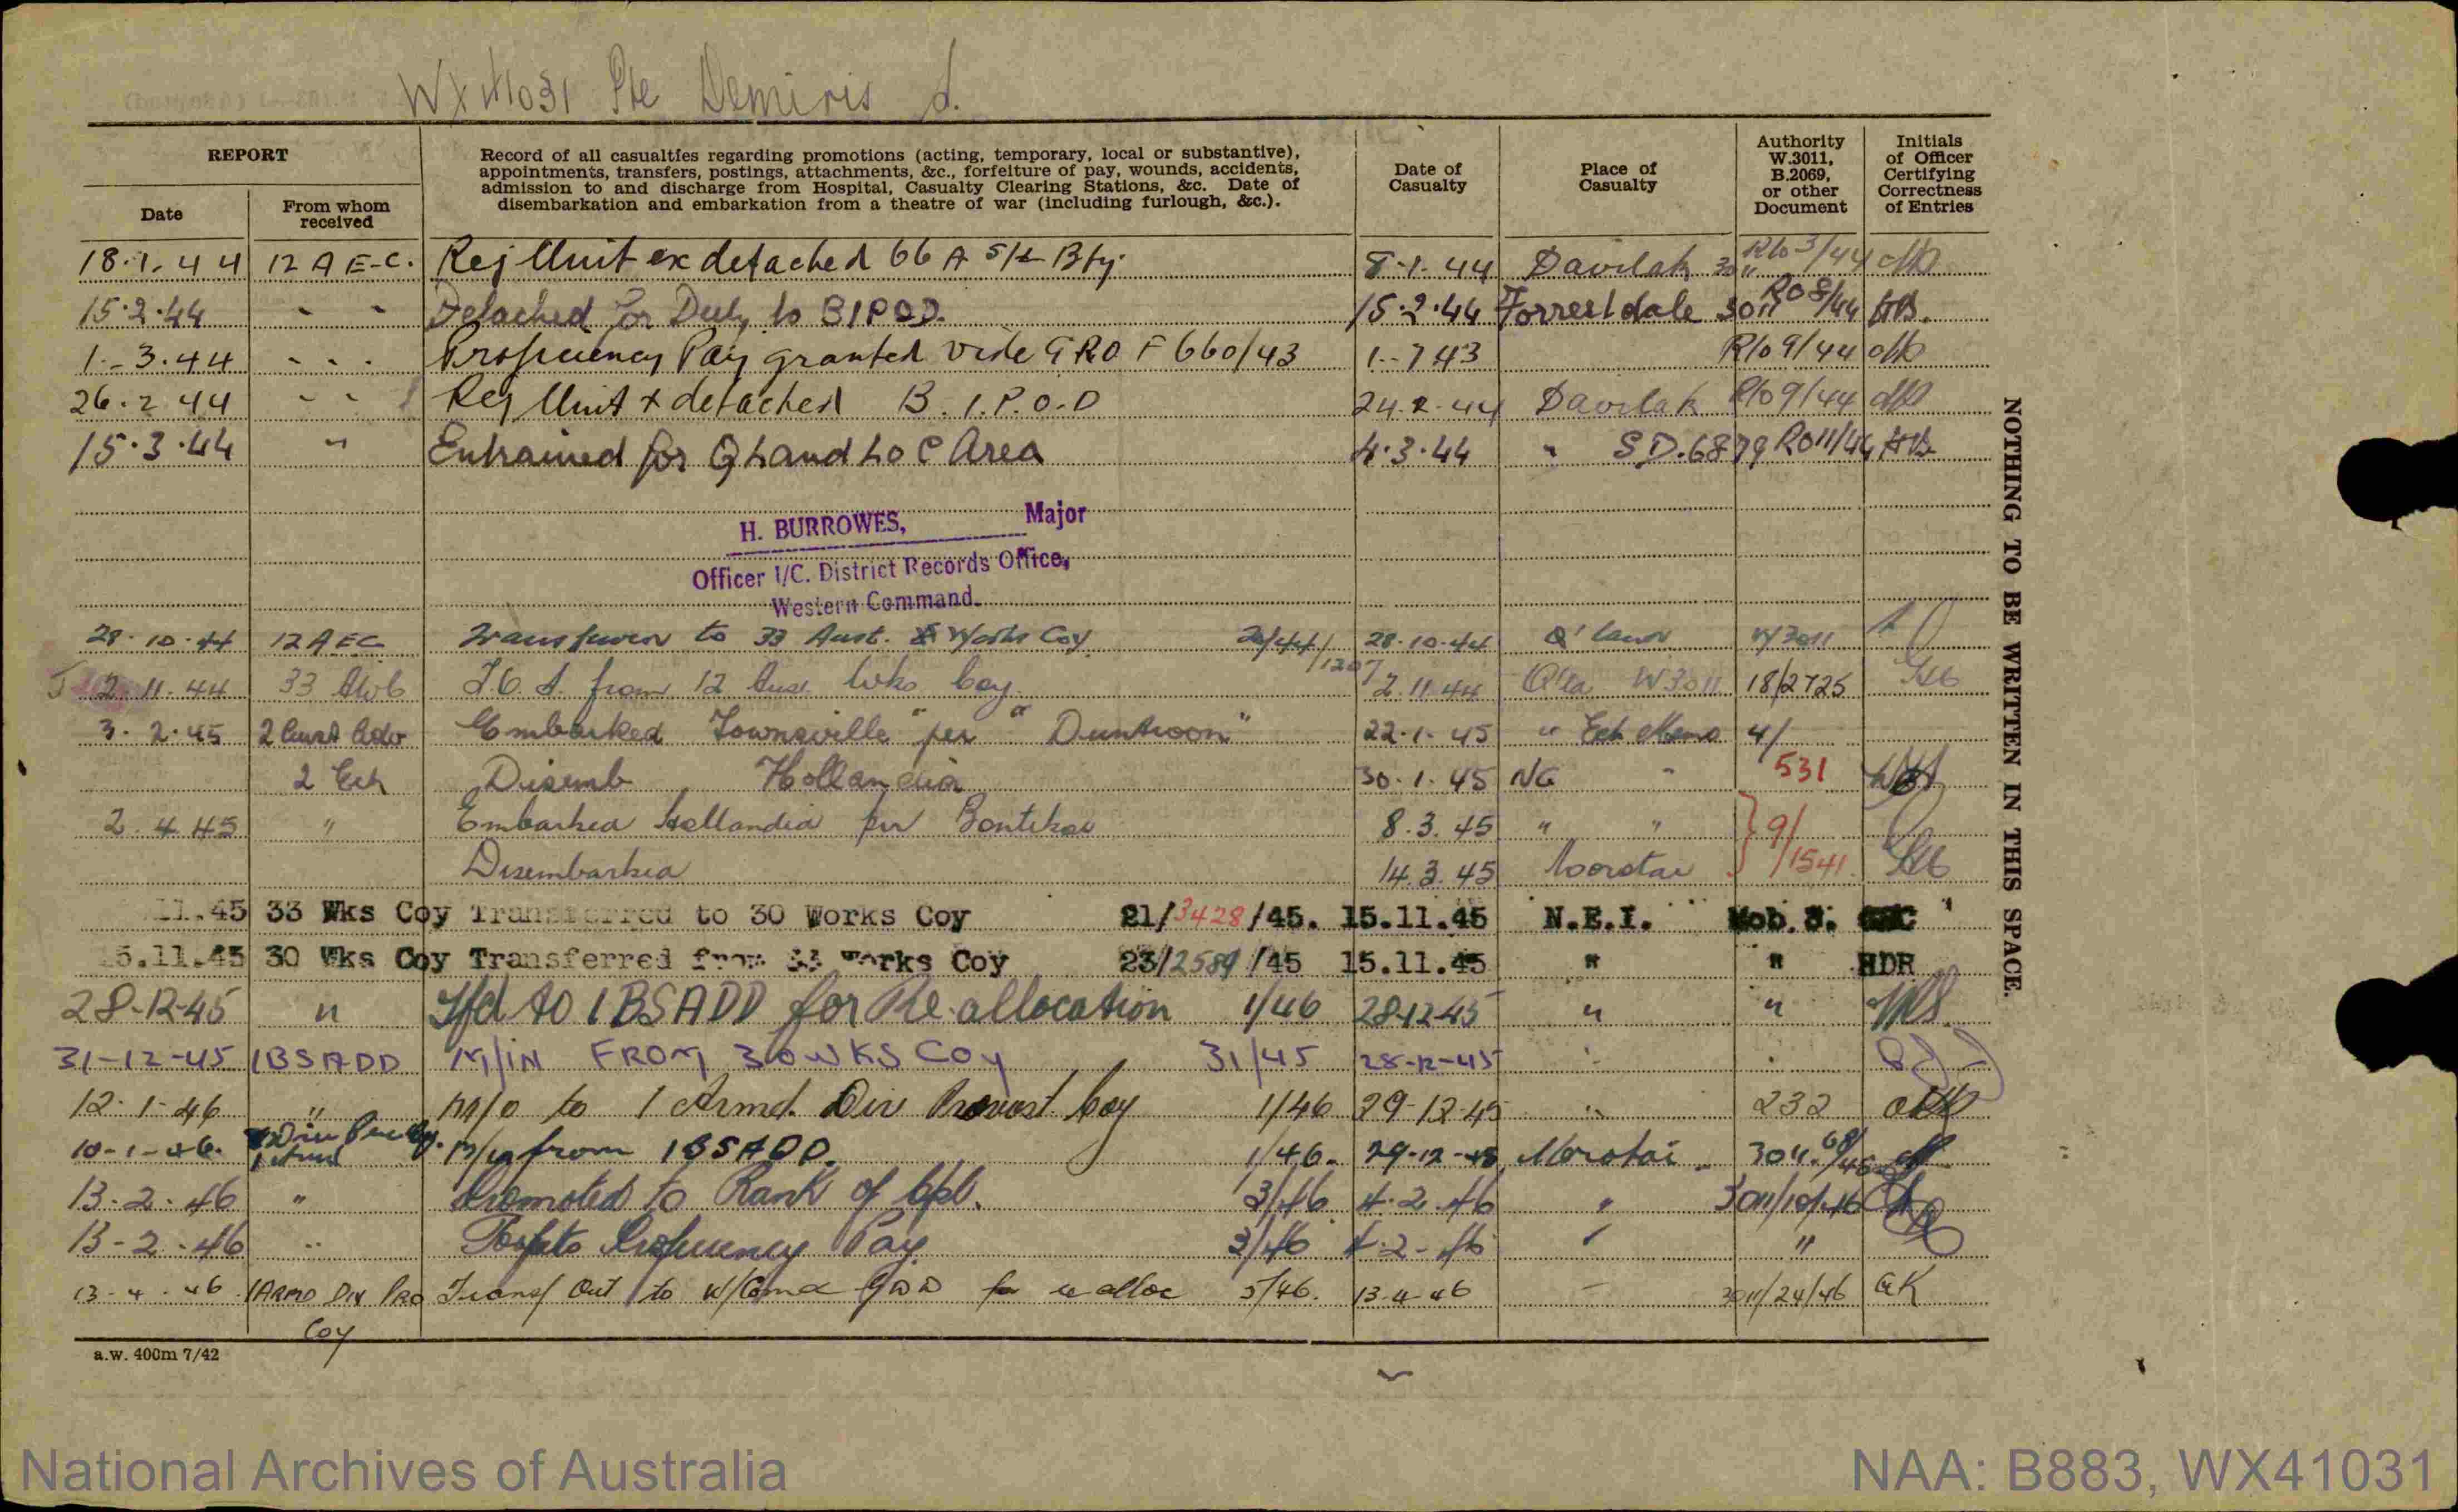 WX41031 Pte Demiris J.
REPORT
Record of all casualties regarding promotions (acting, temporary, local or substantive),
appointments, transfers, postings, attachments, &c., forfeiture of pay, wounds, accidents,
admission to and discharge from Hospital, Casualty Clearing Stations, &c. Date of
disembarkation and embarkation from a theatre of war (including furlough, &c.).
Date of
Casualty
Place of
Casualty
Authority
W.3011,
B.2069,
or other
Document
Initials
of Officer
Certifying
Correctness
of Entries
Date
From whom
received
18.1.44 12 A E.C. Rej Unit ex detached 66 A S/L Bty. 8.1.44 Davilak 30" R/o 3/44
15.2.44 " " Detached for Duty to B I P O D. 15.2.44 Forrestdale 3011 RO 8/44 HB.
1.3.44 " " Proficiency Pay granted vide GRO F 660/43 1.7 43 R/o 9/44
26.2 44 " " Rej Unit x detached B.I.P.O.D 24.2.44 Davilak R/o 9/44
15.3.44 " Entrained for Q Land L o C Area 4.3.44 " S.D. 6879 RO 11/44 HB
H. BURROWES, Major
Officer I/C. District Records Office,
Western Command.
28.10.44 12 AEC to 33 Aust. Works Coy 28.10.44 Q'land W3011
2.11.44 33 from 12 Aust Wks Coy. 2.11.44 Q'ld W3011 18/2725
3.2.45 2 Aust Adv Embarked Townsville per "Duntroon" 22.1.45 " Ech Memo 4/
2 Ech Disemb Hollandia 30.1.45 NG " 531
2.4.45 " Embarked Hollandia per Bontekoe 8.3.45 " " 9/
Disembarked 14.3.45 Morotai 1541
11.45 33 Wks Coy Transferred to 30 Works Coy 21/3428/45. 15.11.45 N.E.I. Mob. S.
15.11.45 30 Wks Coy Transferred from 33 Works Coy 23/2589/45 15.11.45 " " HDR
28-12-45 " Tfd to 1 BSADD for Re allocation 1/46 28-12-45 " "
31-12-45 1BSADD M/IN FROM 30 WKS COY 31/45 28-12-45
12.1.46 " M/O to 1 Armd. Div Provost Coy 1/46 29-12-45 " 232
10-1-46. 1 Armd Div Pro Coy. M/In from 1 BSADD. 1/46. 29-12-45 Morotai 3011
13.2.46 " Promoted to Rank of Cpl. 3/46 4.2.46 " 3011/10/46
13-2-46 " Forfeits Proficiency Pay 3/46 4-2-46 " "
13-4-46 1 ARMD DIV PRO Coy Transf Out to W/Comd GDD for re alloc 5/46. 13-4-46 3011/24/46 GK
a.w. 400m 7/42
NOTHING TO BE WRITTEN IN THIS SPACE.
National Archives of Australia
NAA: B883, WX41031